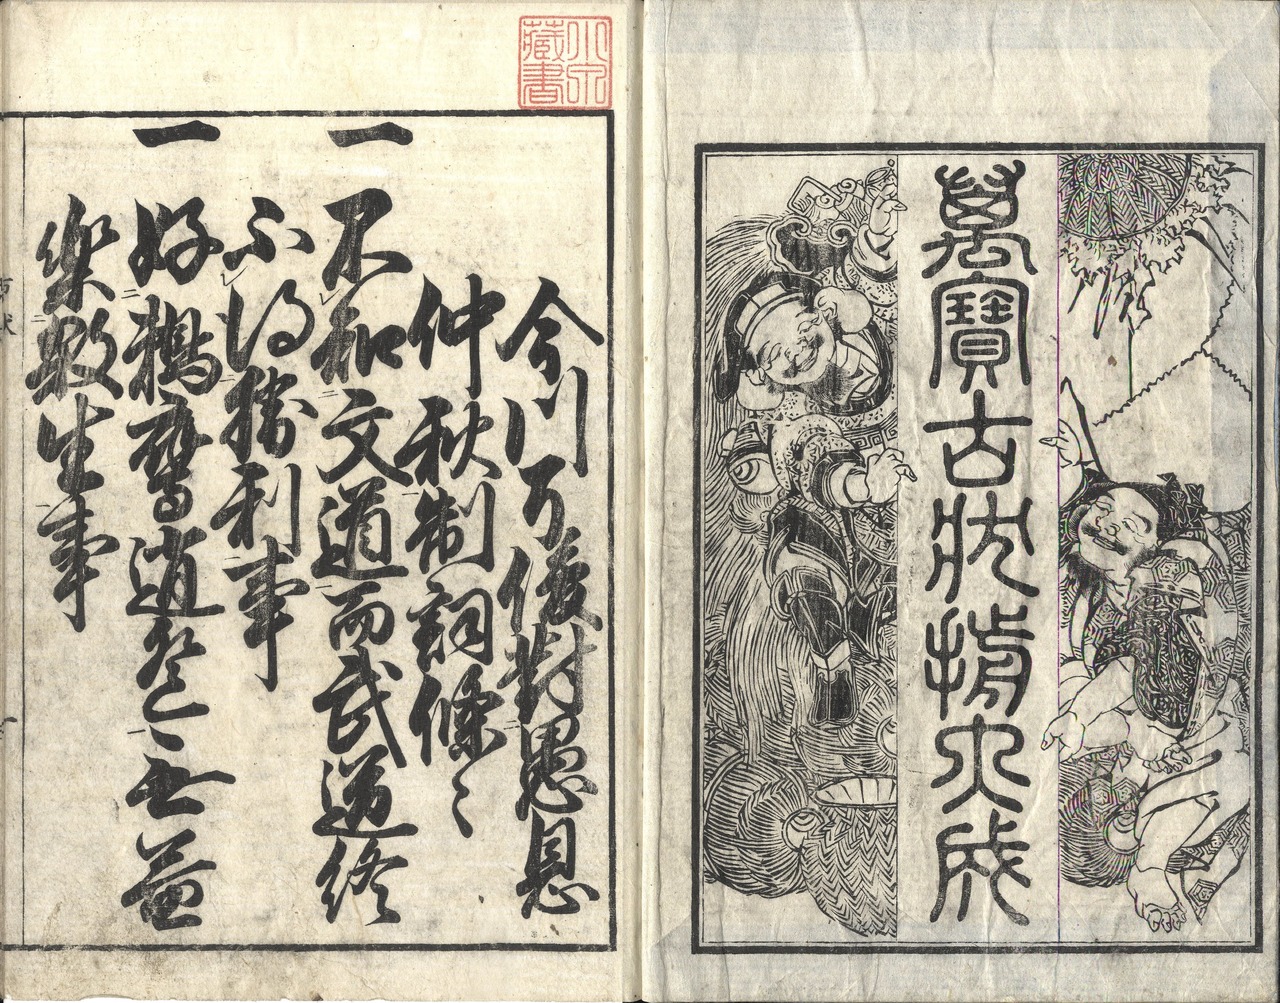 萬寶古状揃大成
藏書
今川了俊對愚息
仲秋制詞條々
一 不知文道而武道終
不得勝利事
一 好鵜鷹逍遥無益
樂殺生事